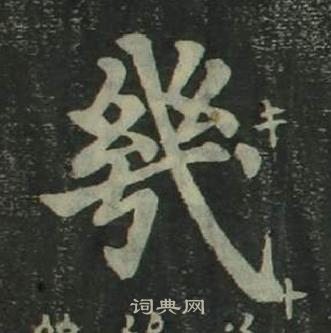 幾
词典网